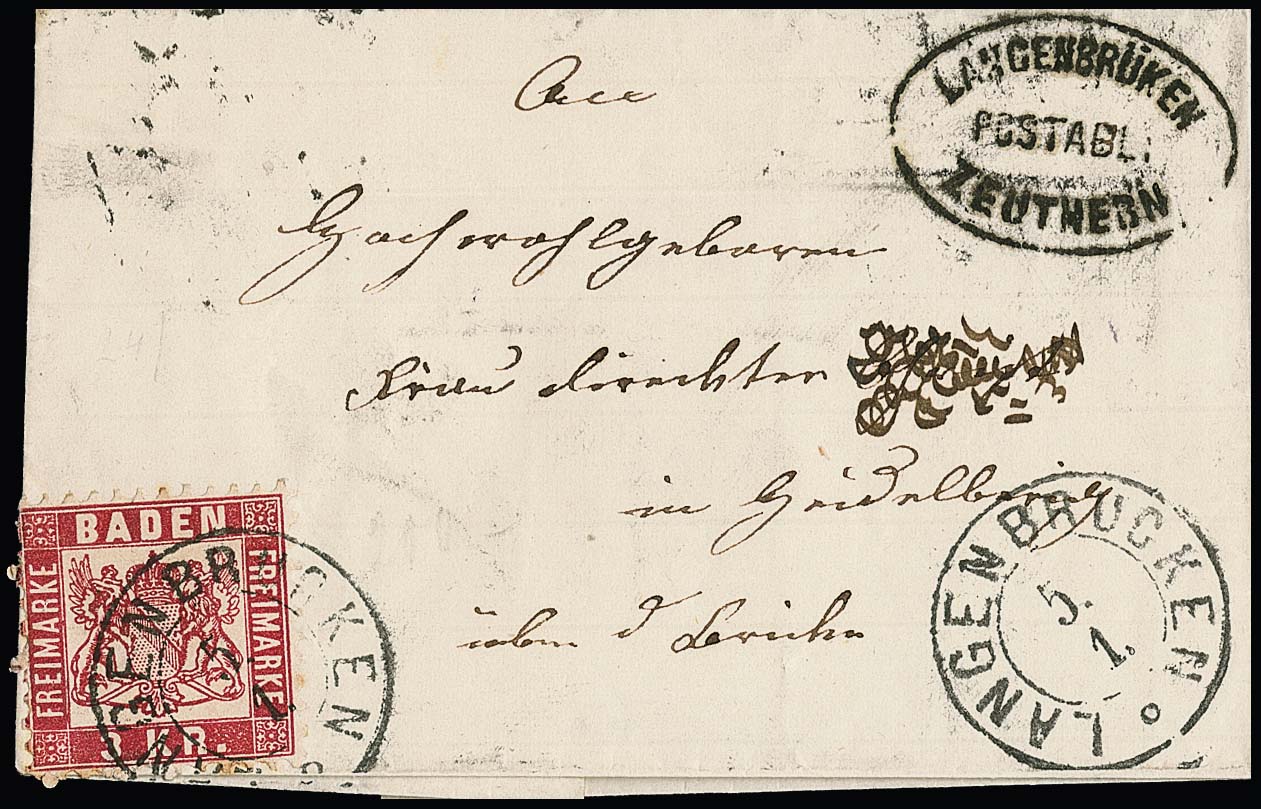 LANGENBRÜKEN
POSTABL:
ZEUTHERN
An
Hochwohlgeboren
Frau Direkter
in Heidelberg
über d Brücke
BADEN
FREIMARKE
FREIMARKE
3 KR.
LANGENBRUCKEN
5.
1.
LANGENBRUCKEN
5.
1.